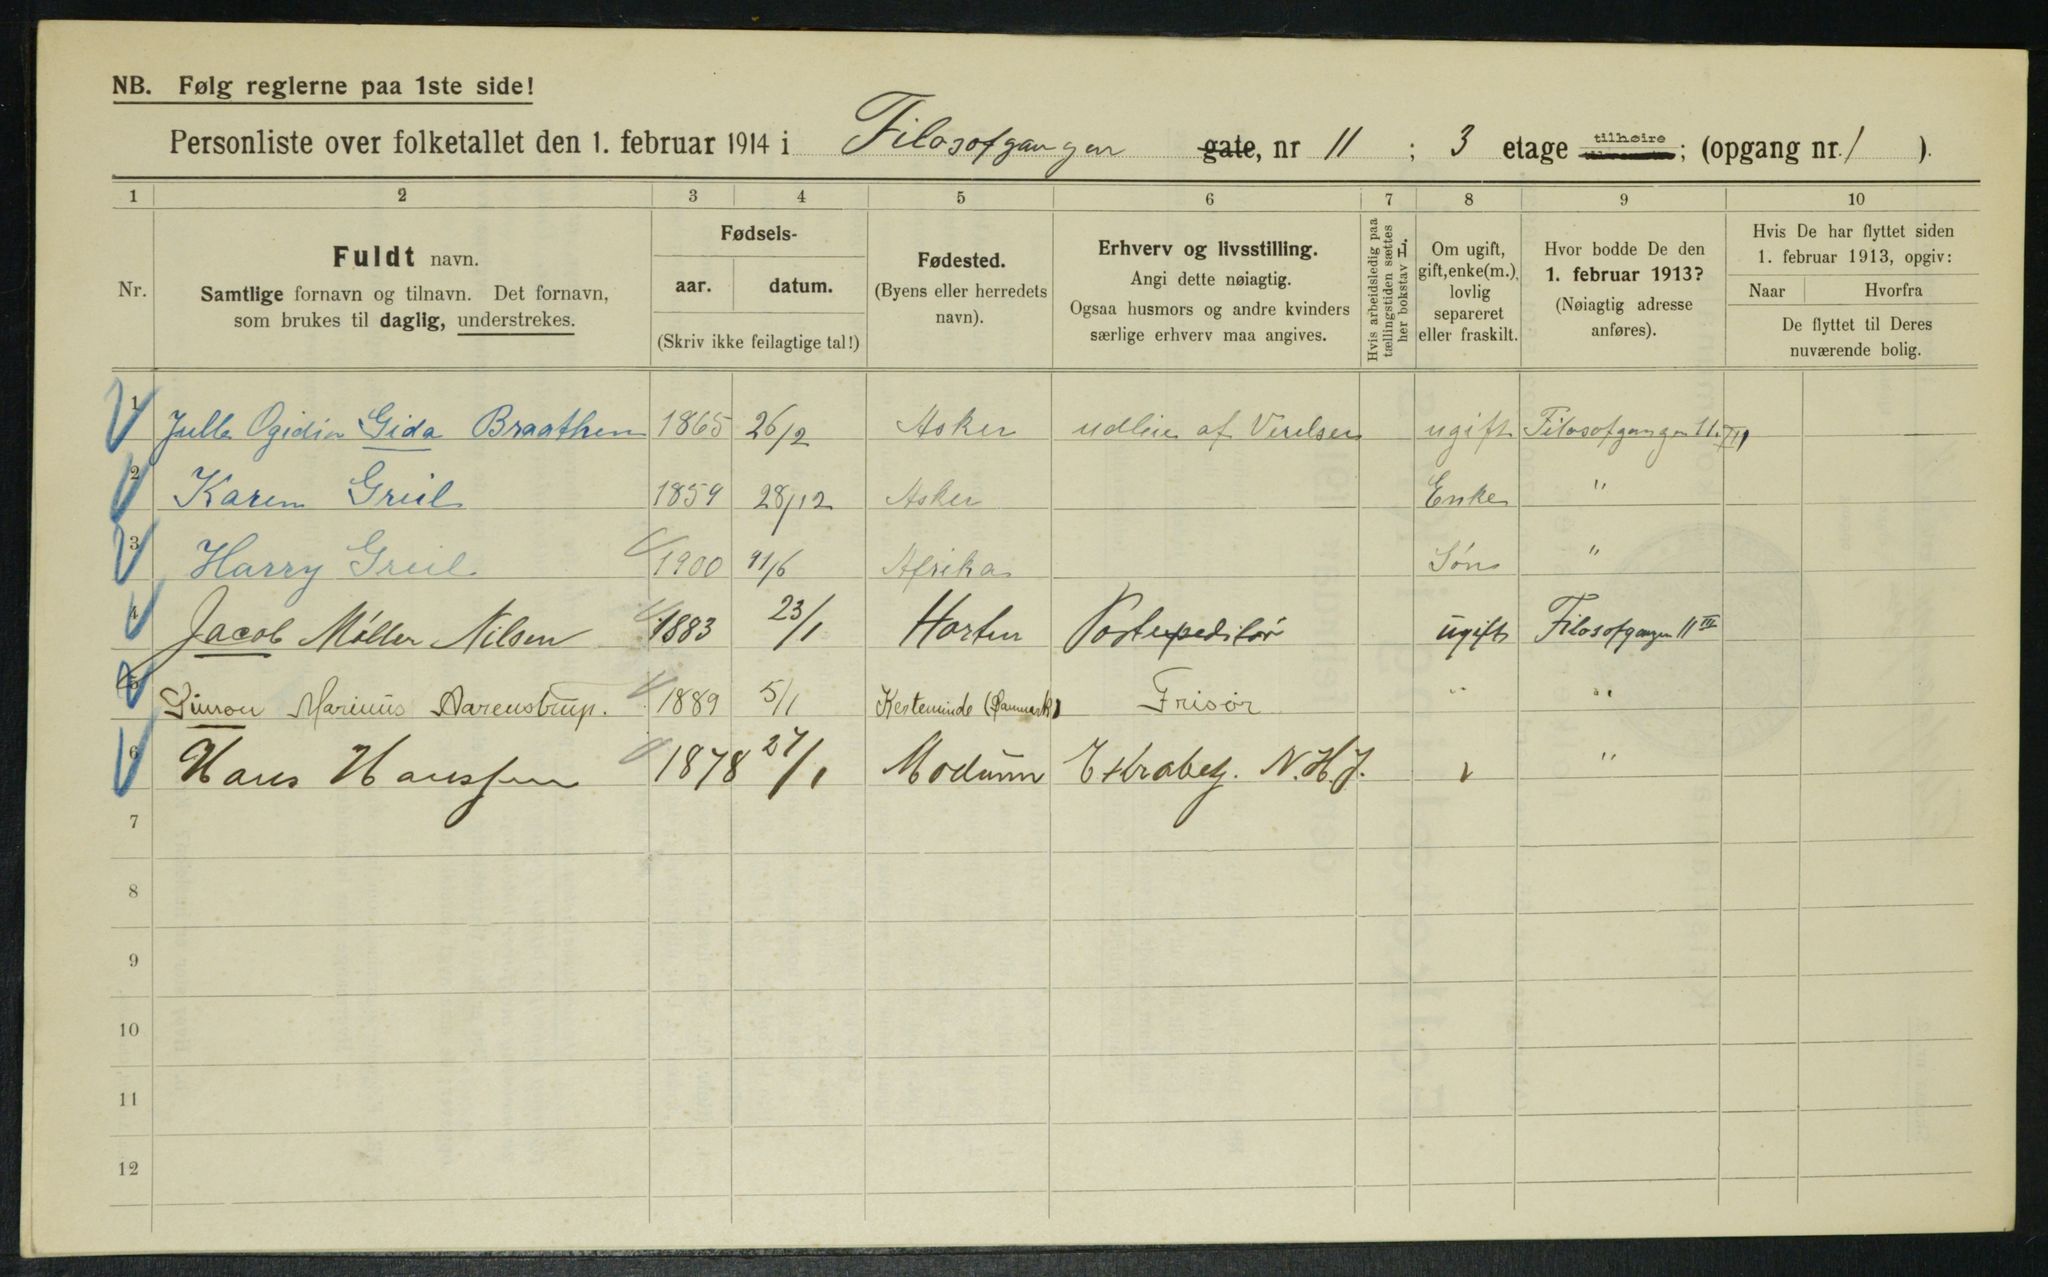 NB. Følg reglerne paa 1ste side!
Personliste over folketallet den 1. februar 1914 i Filosofgangen gate, nr 11 ; 3 etage tilhøire ; (opgang nr. 1 ).
1 2 3 4 5 6 7 8 9 10
Nr.
Fuldt navn.
Samtlige fornavn og tilnavn. Det fornavn,
som brukes til daglig, understrekes.
Fødsels-
aar. datum.
(Skriv ikke feilagtige tal!)
Fødested.
(Byens eller herredets
navn).
Erhverv og livsstilling.
Angi dette nøiagtig.
Ogsaa husmors og andre kvinders
særlige erhverv maa angives.
Hvis arbeidsledig paa
tællingstiden sættes
her bokstav L.
Om ugift,
gift, enke(m.),
lovlig
separeret
eller fraskilt.
Hvor bodde De den
1. februar 1913?
(Nøiagtig adresse
anføres).
Hvis De har flyttet siden
1. februar 1913, opgiv:
Naar Hvorfra
De flyttet til Deres
nuværende bolig.
1 Julle Ogidia Gida Braathen 1865 26/2 Asker udleie af Værelser ugift Filosofgangen 11 III
2 Karen Greil 1859 28/12 Asker Enke "
3 Harry Greil 1900 11/6 Afrika Søn "
4 Jacob Møller Nilsen 1883 23/1 Horten Postexpeditør ugift Filosofgangen 11 III
5 Simon Marinus Aarenstrup. 1889 5/1 Kerteminde (Danmark) Frisør " "
6 Hans Hanssen 1878 27/1 Modum Extrabetj. N.H.J. "
7
8
9
10
11
12